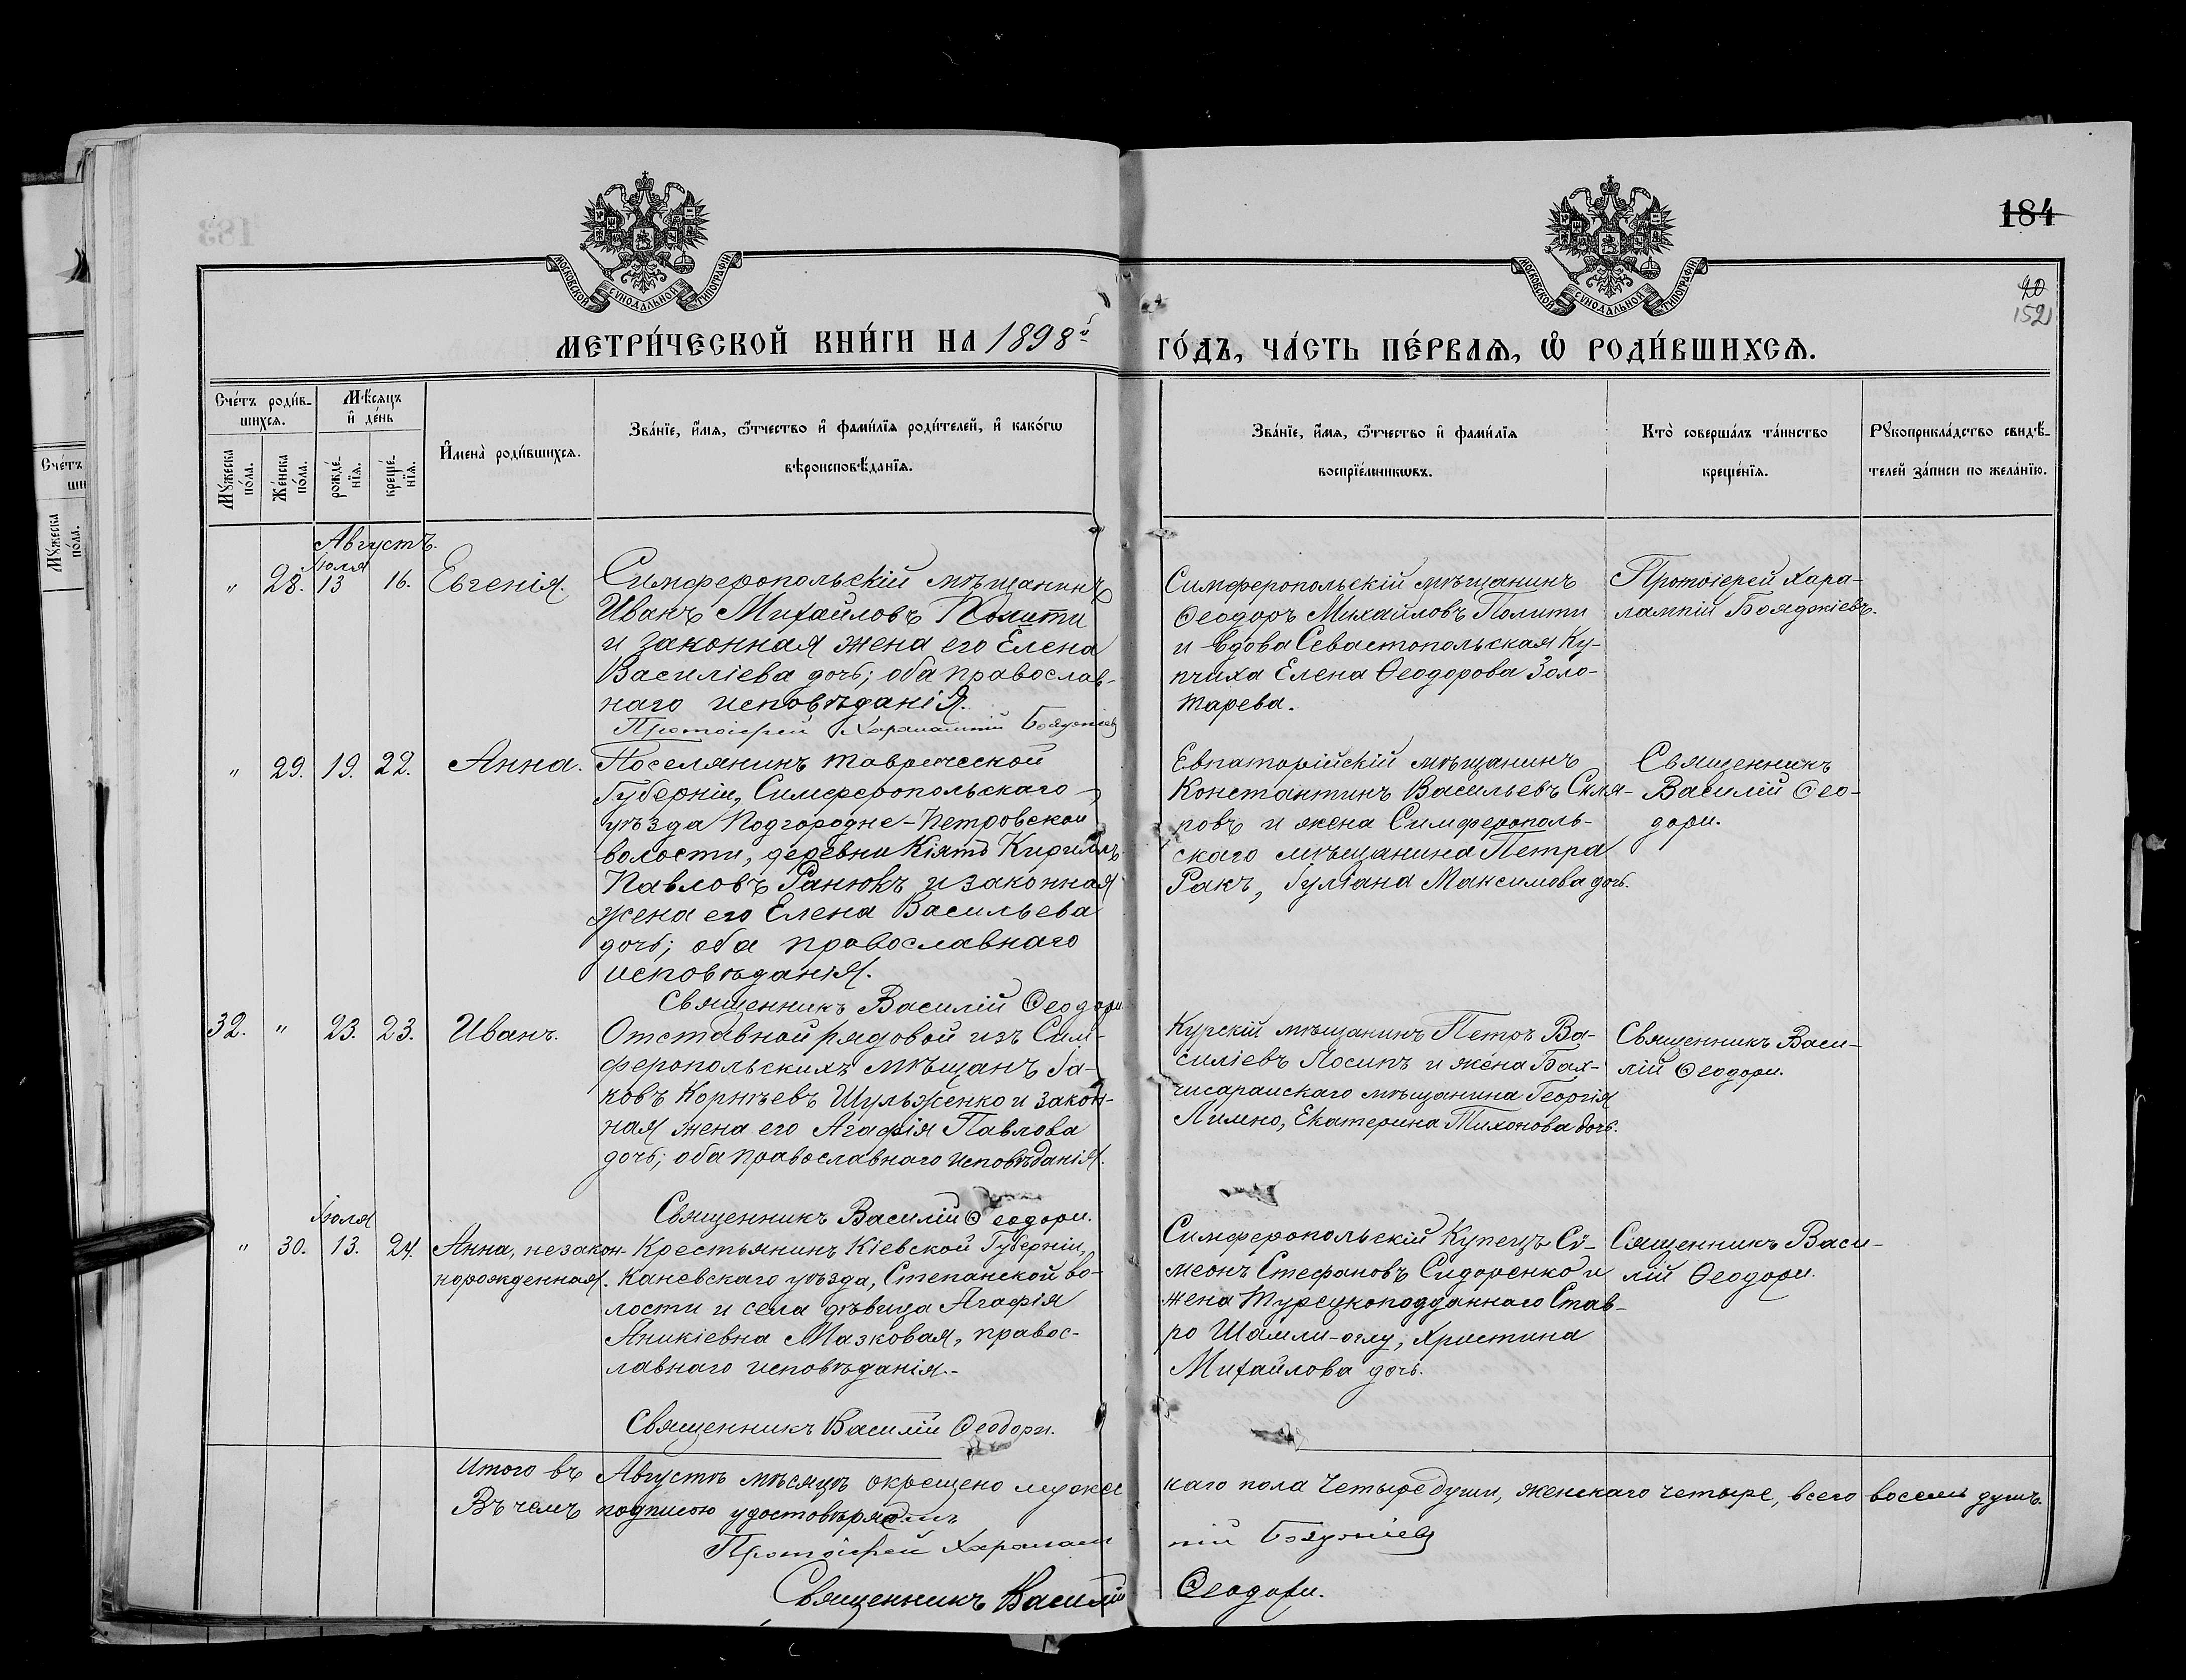 183
184
20
152
МОСКОВСКОЙ СУНОДАЛЬНОЙ ТИПОГРАФІИ
МОСКОВСКОЙ СУНОДАЛЬНОЙ ТИПОГРАФІИ
МЕТРИ́ЧЕСКОЙ КНИ́ГИ НА 1898й
ГО́ДЪ, ЧА́СТЬ ПЕ́РВАѦ, Ѡ҆ РОДИ́ВШИХСѦ.
Счетъ
Мꙋ́жеска по́ла.
Сче́тъ роди́в-
шихсѧ.
Мѣ́сѧцъ
и҆ де́нь
Мꙋ́жеска по́ла.
Же́нска по́ла.
рожде́-нїѧ.
креще́-нїѧ.
И҆мена̀ роди́вшихсѧ.
Зва́нїе, и҆́мѧ, ѻ҆́тчество и҆ фами́лїѧ роди́телей, и҆ како́гѡ
вѣроисповѣ́данїѧ.
Зва́нїе, и҆́мѧ, ѻ҆́тчество и҆ фами́лїѧ
воспрїе́мникѡвъ.
Кто̀ соверша́лъ та́инство
креще́нїѧ.
Рꙋкоприкла́дство свидѣ́-
телей за́писи по жела́нїю.
Августъ.
Іюля
" 28. 13 16. Евгенія.
Симферопольскій мѣщанинъ
Иванъ Михайловъ Полити
и законная жена его Елена
Василіева дочь; оба православ-
наго исповѣданія.
Протоіерей Харалампій Бояджіевъ
Симферопольскій мѣщанинъ
Ѳеодоръ Михайловъ Полити
и вдова Севастопольская Ку-
пчиха Елена Ѳеодорова Золо-
тарева.
Протоіерей Хара-
лампій Бояджіевъ.
" 29. 19. 22. Анна.
Поселянинъ Таврической
Губерніи, Симферопольскаго
уѣзда Подгородне-Петровской
волости, деревни Кіятъ Кириллъ
Павловъ Ранюкъ и законная
жена его Елена Васильева
дочь; оба православнаго
исповѣданія.
Священникъ Василій Ѳеодори
Евпаторійскій мѣщанинъ
Константинъ Васильевъ Скля-
ровъ и жена Симферополь-
скаго мѣщанина Петра
Ракъ, Іуліана Максимова дочь.
Священникъ
Василій Ѳео-
дори.
32. " 23. 23. Иванъ.
Отставной рядовой изъ Сим-
феропольскихъ мѣщанъ Іа-
ковъ Корнѣевъ Шульженко и закон-
ная жена его Агафія Павлова
дочь; оба православнаго исповѣданія.
Священникъ Василій Ѳеодори.
Курскій мѣщанинъ Петръ Ва-
силіевъ Лосинъ и жена Бах-
чисарайскаго мѣщанина Георгія
Лимно, Екатерина Тихонова дочь.
Священникъ Васи-
лій Ѳеодори.
Іюля
" 30. 13. 24. Анна, незакон-
норожденная.
Крестьянинъ Кіевской Губерніи,
Каневскаго уѣзда, Степанской во-
лости и села дѣвица Агафія
Аникіевна Мазковая, правос-
лавнаго исповѣданія.-
Священникъ Василій Ѳеодори.
Симферопольскій Купецъ Сѵ-
меонъ Стефановъ Сидоренко и
жена Турецкоподданнаго Став-
ро Шамли-оглу, Христина
Михайлова дочь.
Сященникъ Васи-
лій Ѳеодори.
Итого въ Августѣ мѣсяцѣ окрещено мужес
каго пола четыре души, женскаго четыре, всего восемь душъ.
Въ чемъ подписью удостовѣряемъ
Протоіерей Харалам
пій Бояджіевъ
Священникъ Василій
Ѳеодори.